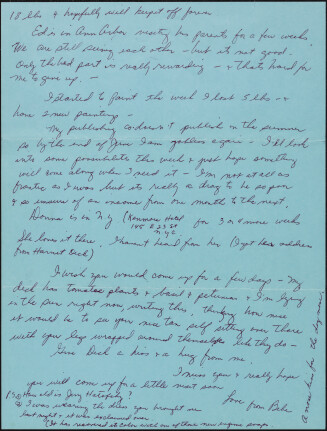 10 lbs & hopefully will keep it off forever
Ed is in Ann Arbor visiting his parents for a few weeks
We are still seeing each other - but its not good.
Only the bed part is really rewarding - & thats hard for
me to give up. -
I started to paint the week I lost 5 lbs - &
have 2 new paintings -
My publishing co doesn't publish in the summer
so by the end of June I am jobless again - I'll look
into some possibilities this week & just hope something
will come along when I need it - I'm not at all as
frantic as I was but its really a drag to be so poor
& so unsure of an income from one month to the next.
Donna is in NY (Kenmore Hotel for 3 or 4 more weeks
145 E 23 St
N.Y.C
She loves it there. I haven't heard from her (I got her address
from Harriet Deck)
I wish you would come up for a few days - My
deck has tomatoe plants & basil & petunias & I'm lying
in the sun right now, writing this, thinking how nice
it would be to see your nice tan self sitting over there
with your legs wrapped around themselves like they do -
Give Dick a kiss & a hug from me.
I miss you & really hope
you will come up for a little visit soon
Love from Bebe
How old is Jerry Hatofsky?
I was wearing the dress you brought me
last night & it was exclaimed over
It has reserved its color with one of those new enzyme soaps
A nose kiss for the boy-man